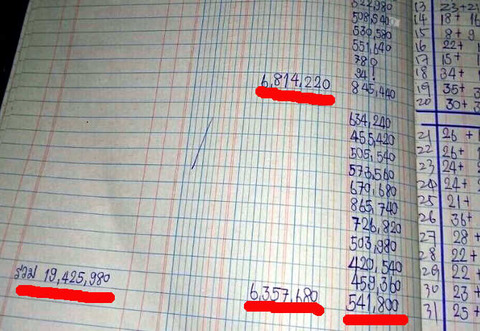 508,540
530,580
551,640
6,814,220 845,440
634,240
455,420
505,540
573,560
679,680
865,740
726,820
503,980
420,540
459,360
รวม 19,425,980
6,357,680 541,800
14 18+
15 8+9
16 22+
17 15+
18 34+
19 35+
20 30+
21 26+
22 26+
23 24+
24 24+
25 21+
26 36+
27 28+
28 22+
29 22+
30 23+
31 25+